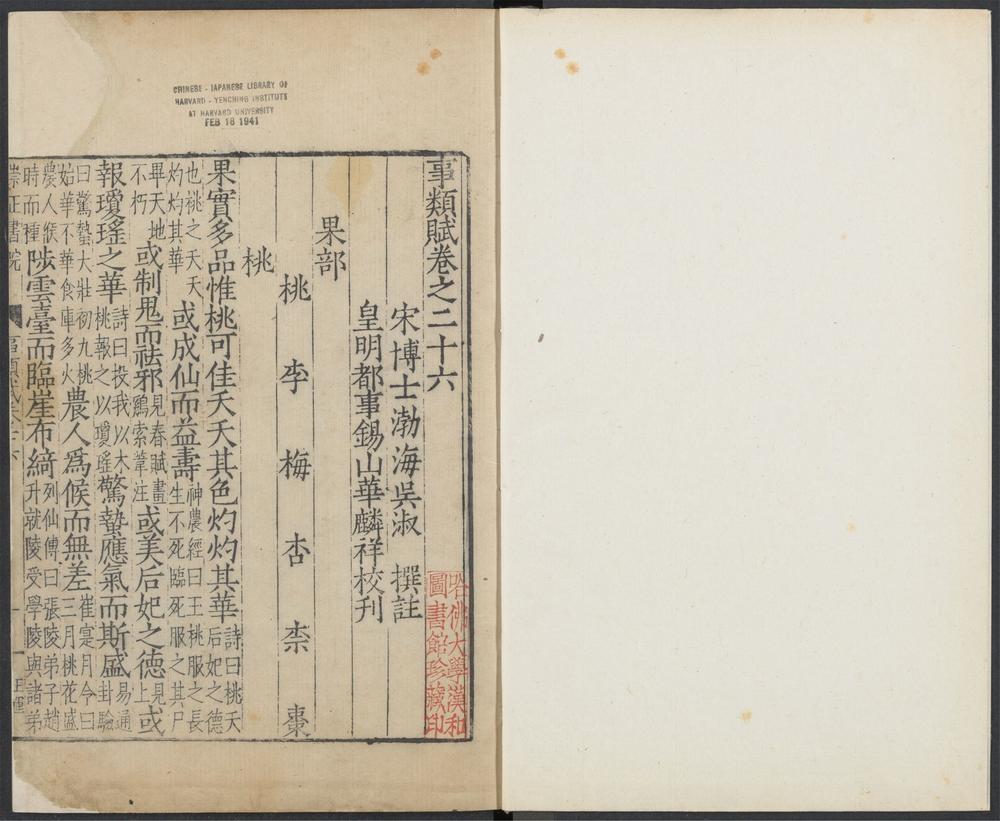 CHINESE - JAPANESE LIBRARY OF
HARVARD - YENCHING INSTITUTE
AT HARVARD UNIVERSITY
FEB 18 1941
事類賦卷之二十六
哈佛大學漢和
圖書館珍藏印
宋博士渤海吳淑 撰註
皇明都事錫山華麟祥校刊
果部
桃 李 梅 杏 柰 棗
桃
果實多品惟桃可佳夭夭其色灼灼其華詩曰桃夭后妃之德
也桃之夭夭灼灼其華或成仙而益壽神農經曰玉桃服之長生不死臨死服之其尸
畢天地不朽或制鬼而祛邪見春賦畫鷄索葦注或美后妃之德見上或
報瓊瑤之華詩曰投我以木桃報之以瓊瑤驚蟄應氣而斯盛易通卦驗
曰驚蟄大壯初九桃始華不華倉庫多火農人爲候而無差崔寔月令曰三月桃花盛
農人候時而種陟雲臺而臨崖布綺列仙傳曰張陵弟子趙升就陵受學陵與諸弟
崇正書院
事類賦卷二十六
一